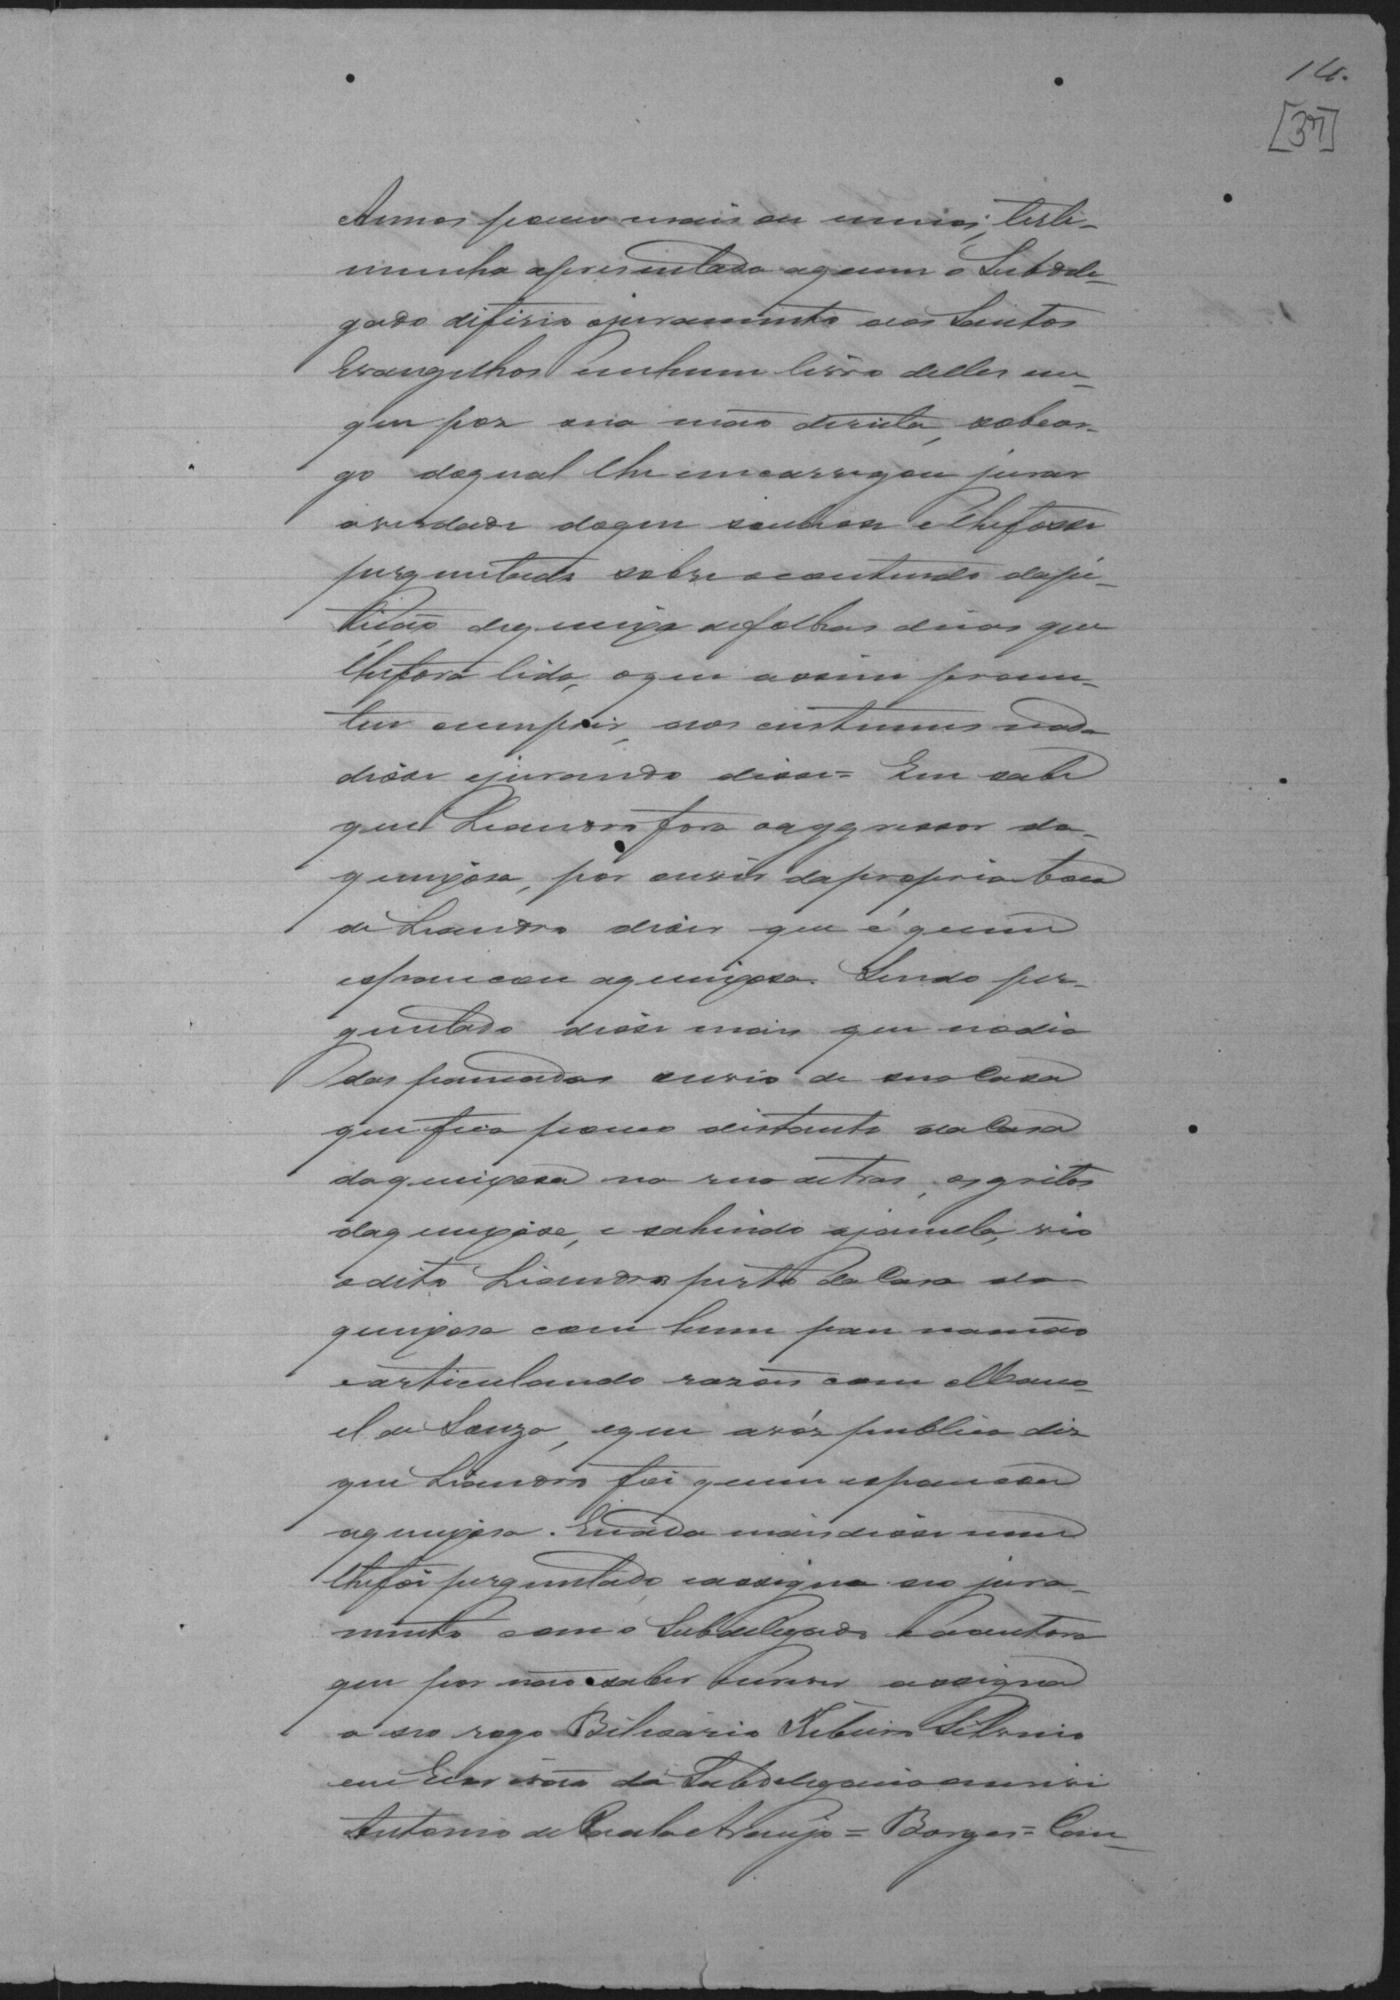 14.
[37]
Annos pouco mais ou menos, teste-
munha apresentada aquem o Subdele-
gado diferio ojuramento aos Santos
Evangelhos emhum livro delles em
que poz sua mão direita, sobcar-
go doqual lhe encarregou jurar
averdade doque soubesse e lhefosse
perguntado sobre ocontendo dape-
tição dequeixa defolhas duas que
lhefora lida, oque assim prome-
teu cumprir, aos custumes nada
disse ejurando disse = Em sabe
que Leandro fora oaggressor da
queixosa, por ouvir dapropria boca
de Leandro diser que é quem
espancou aqueixosa. Sendo per-
guntado disse mais que nodia
das pancadas ouvio de sua Casa
que fica pouco distante da Casa
daqueixosa na rua detras, os gritos
daqueixosa, e sahindo ajanela, vio
odito Leandro perto da Casa da
queixosa com hum pau namão
earticulando razões com Mano-
el de Souza, eque avóz publica diz
que Leandro foi quem espancou
aqueixosa. Enada mais disse nem
lhefoi perguntado, eassigna seo jura-
mento com o Subdelegado e aautora
que por não saber escrever assigna
a seo rogo Bilisario Ribeiro
eu Escrivão da Subdelegacia escrivi
Antonio de Araujo = Borges = Cam-